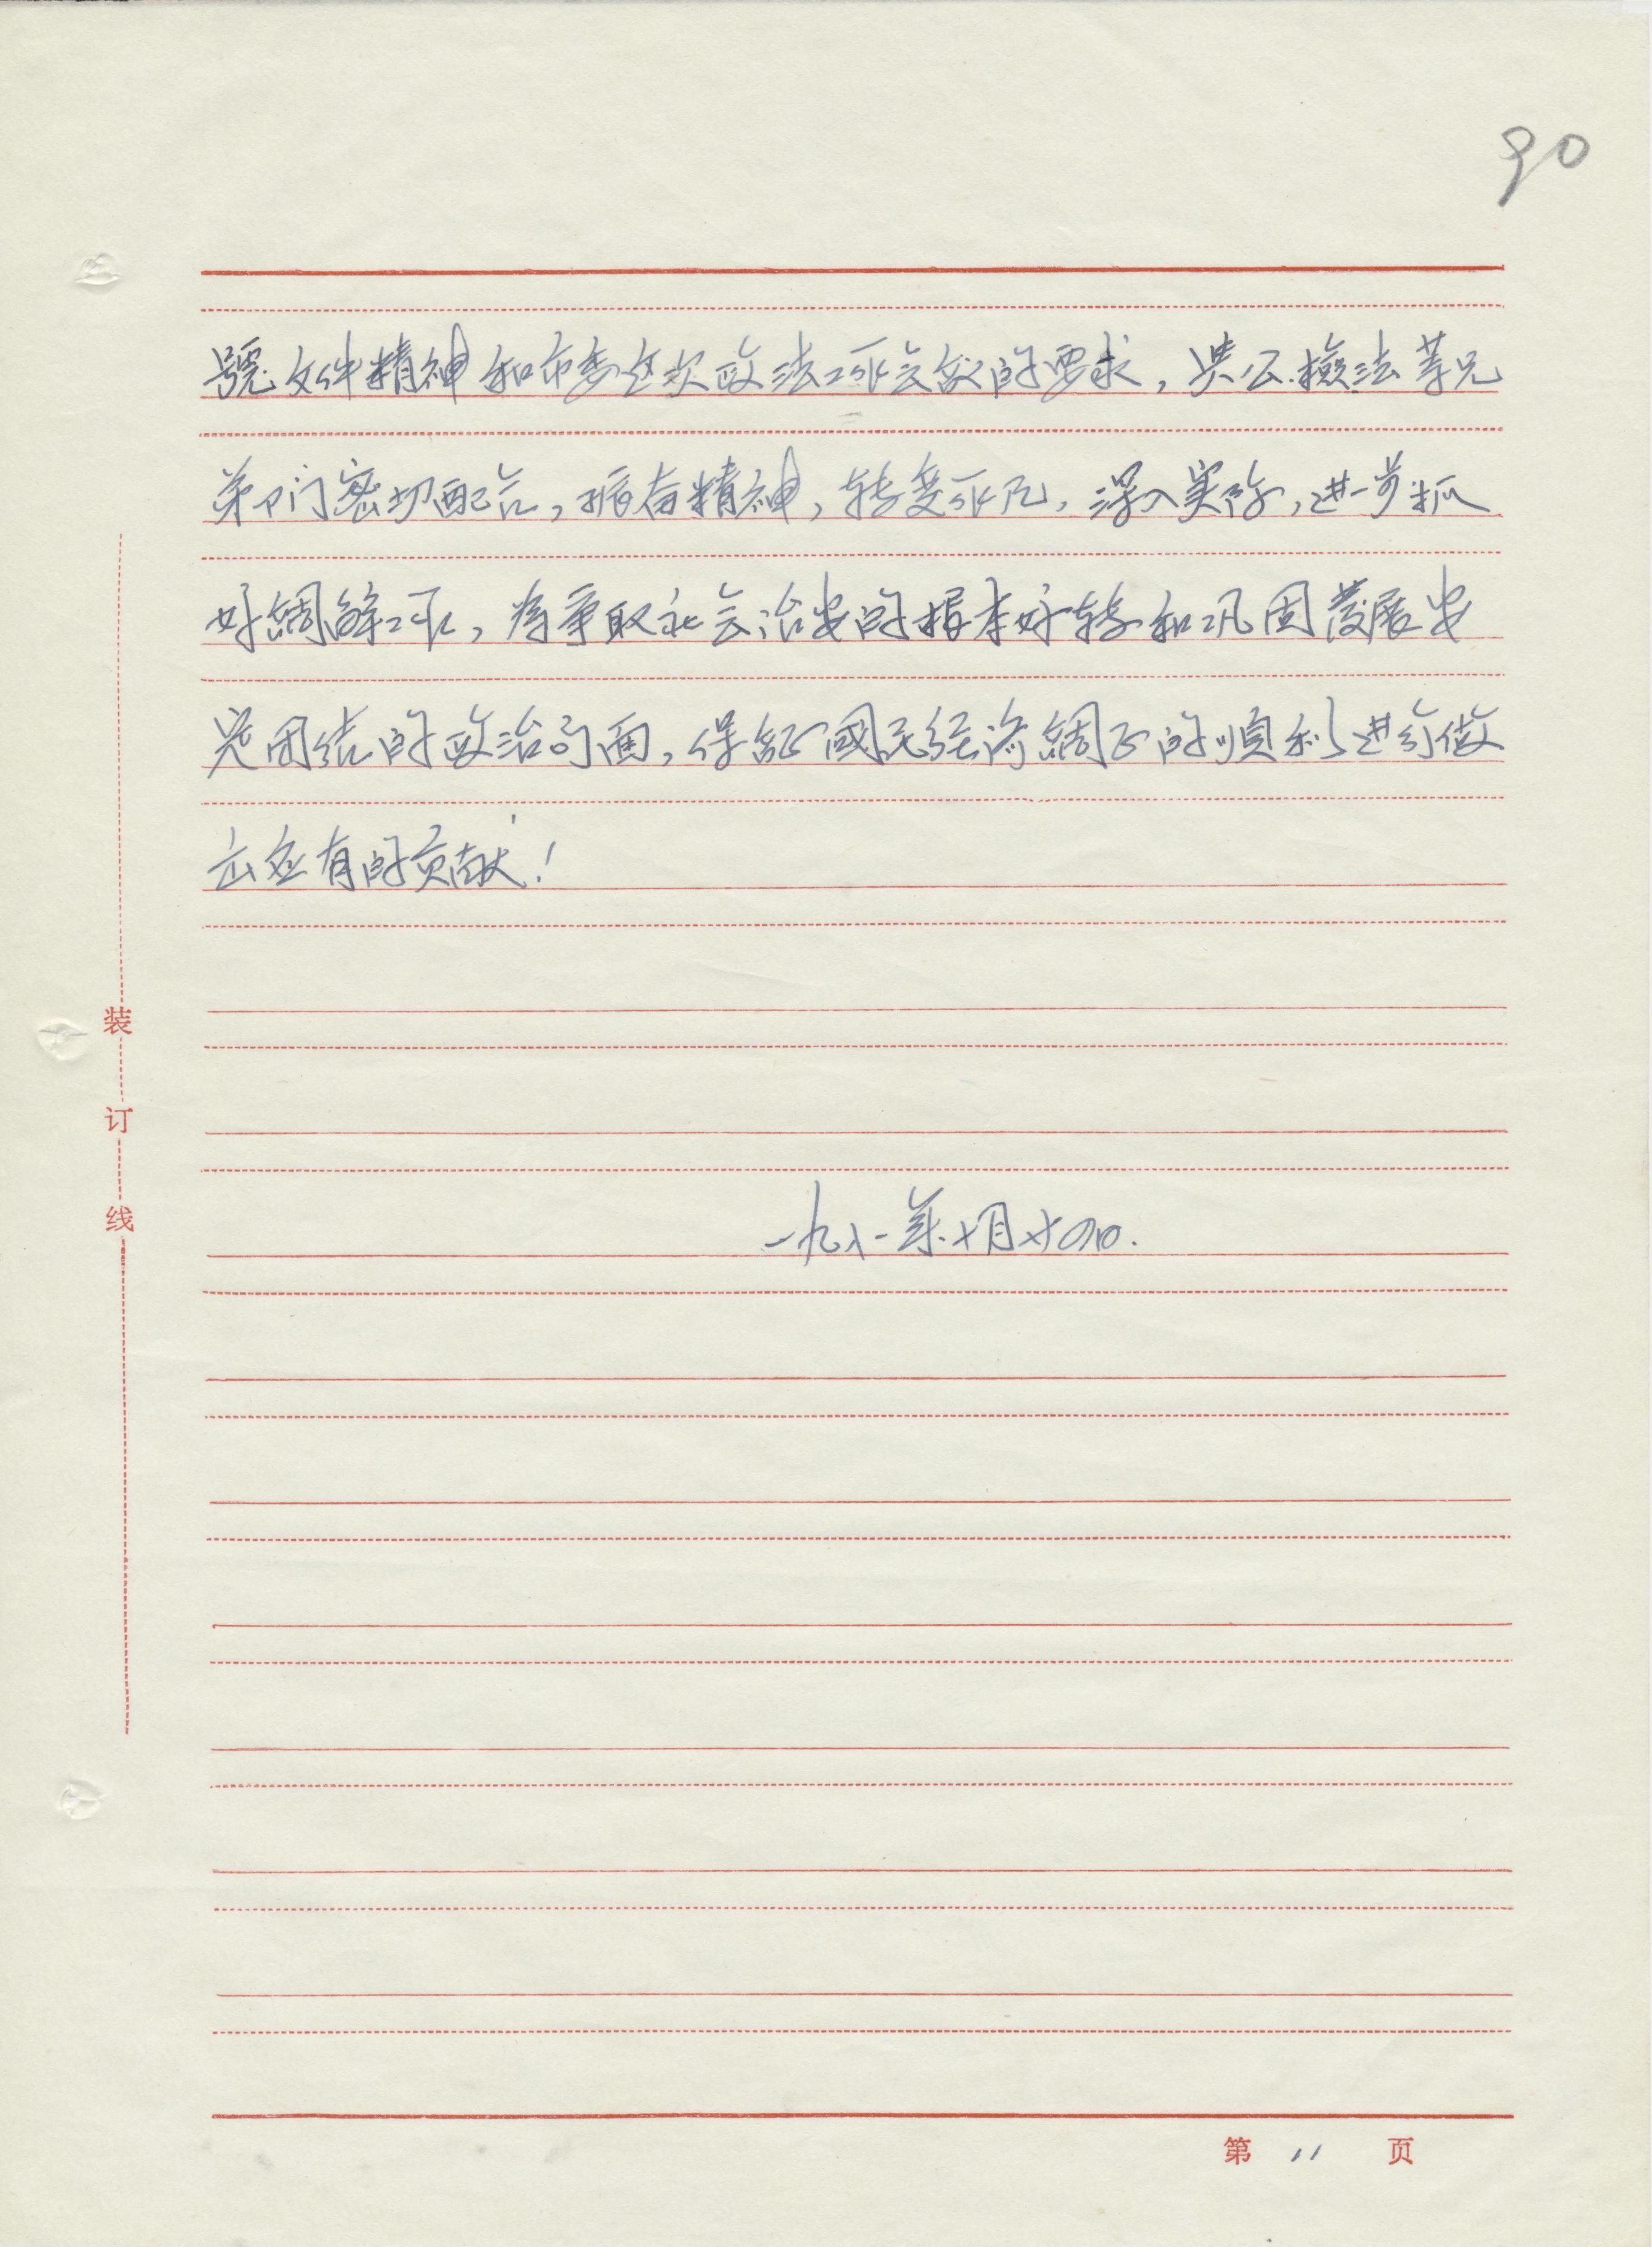 90
號文件精神和市委这次政法工作会议的要求，与公、检、法等兄
弟部门密切配合，振奋精神，转变作风，深入实际，进一步抓
好調解工作，為争取社会治安的根本好转和巩固發展安
定团结的政治局面，保証國民经济調正的順利进行做
出应有的贡献！
装
订
线
一九八一年十月廿四日.
第 11 页